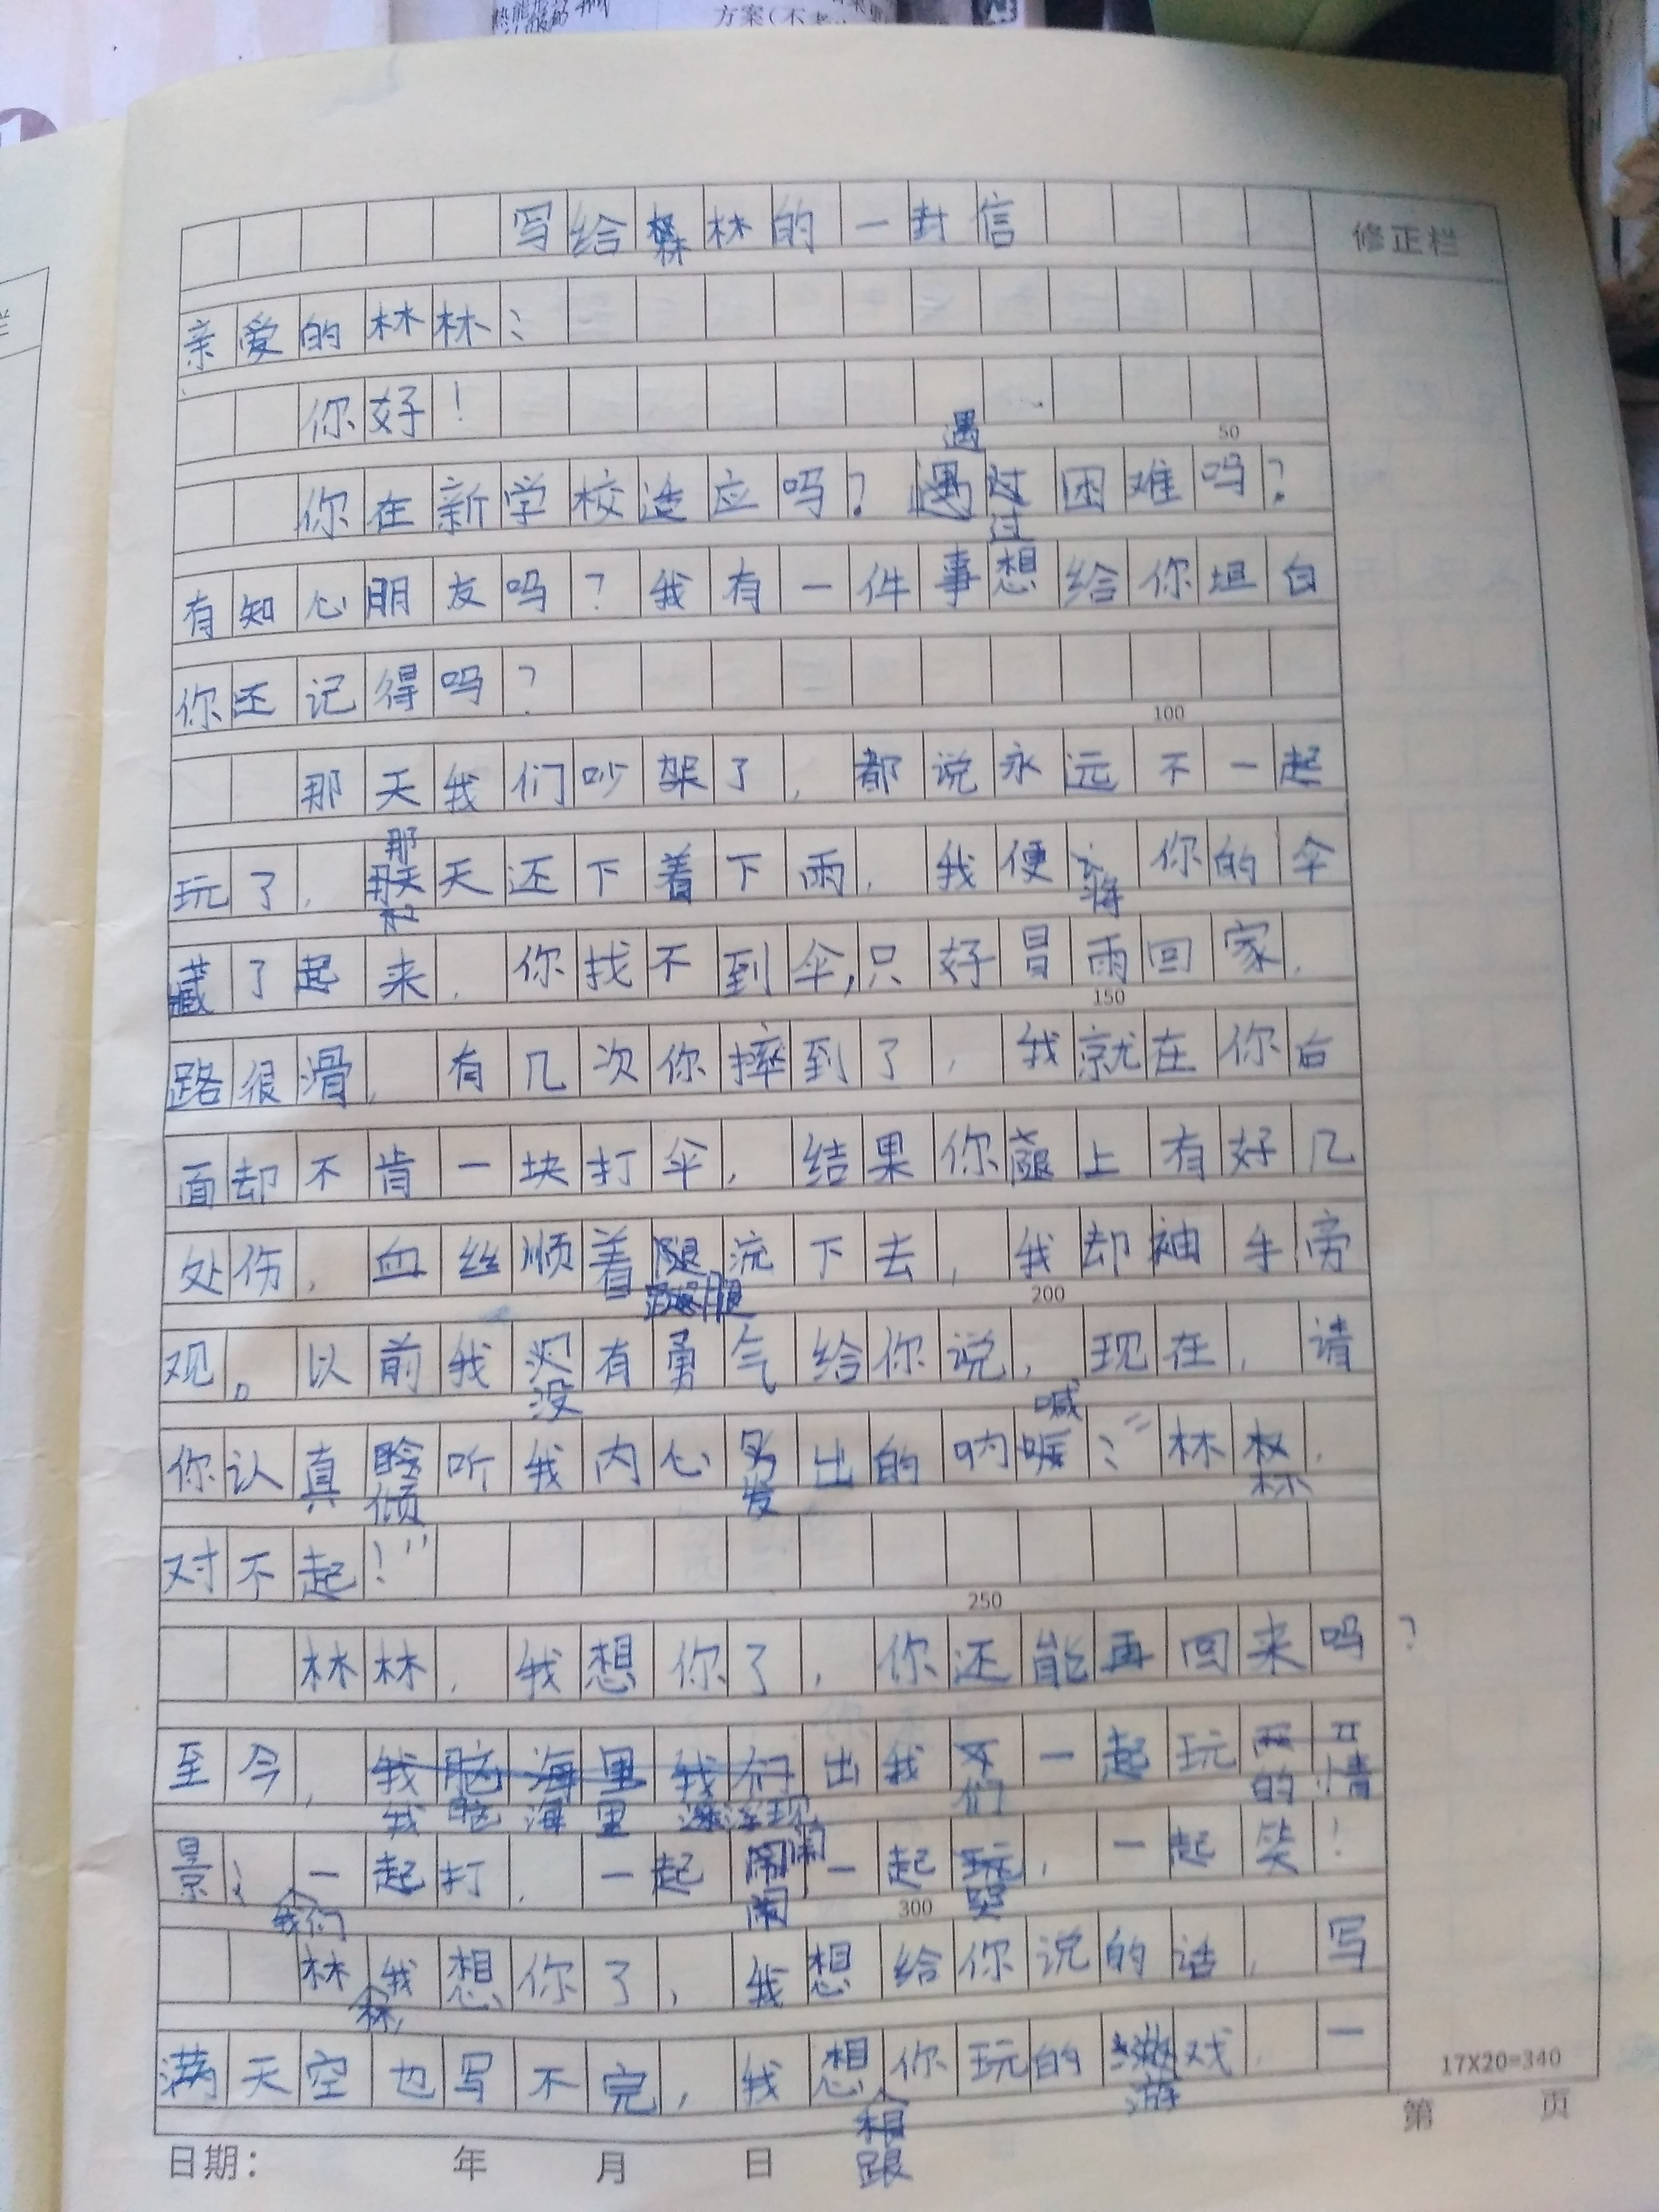 写给林林的一封信
修正栏
亲爱的林林：
你好！
你在新学校适应吗？遇过困难吗？
50
有知心朋友吗？我有一件事想给你坦白
你还记得吗？
100
那天我们吵架了，都说永远不一起
玩了，那天还下着下雨，我便将你的伞
藏了起来，你找不到伞，只好冒雨回家，
150
路很滑，有几次你摔到了，我就在你后
面却不肯一块打伞，结果你腿上有好几
处伤，血丝顺着腿流下去，我却袖手旁
200
观。以前我没有勇气给你说，现在，请
你认真倾听我内心发出的呐喊：“林林，
对不起！”
250
林林，我想你了，你还能再回来吗？
至今，我脑海里浮现出我们一起玩的情
景，我们一起打，一起闹，一起哭，一起笑！
300
林林，我想你了，我想给你说的话，写
满天空也写不完，我想跟你玩的游戏，一
17X20=340
日期： 年 月 日
第 页